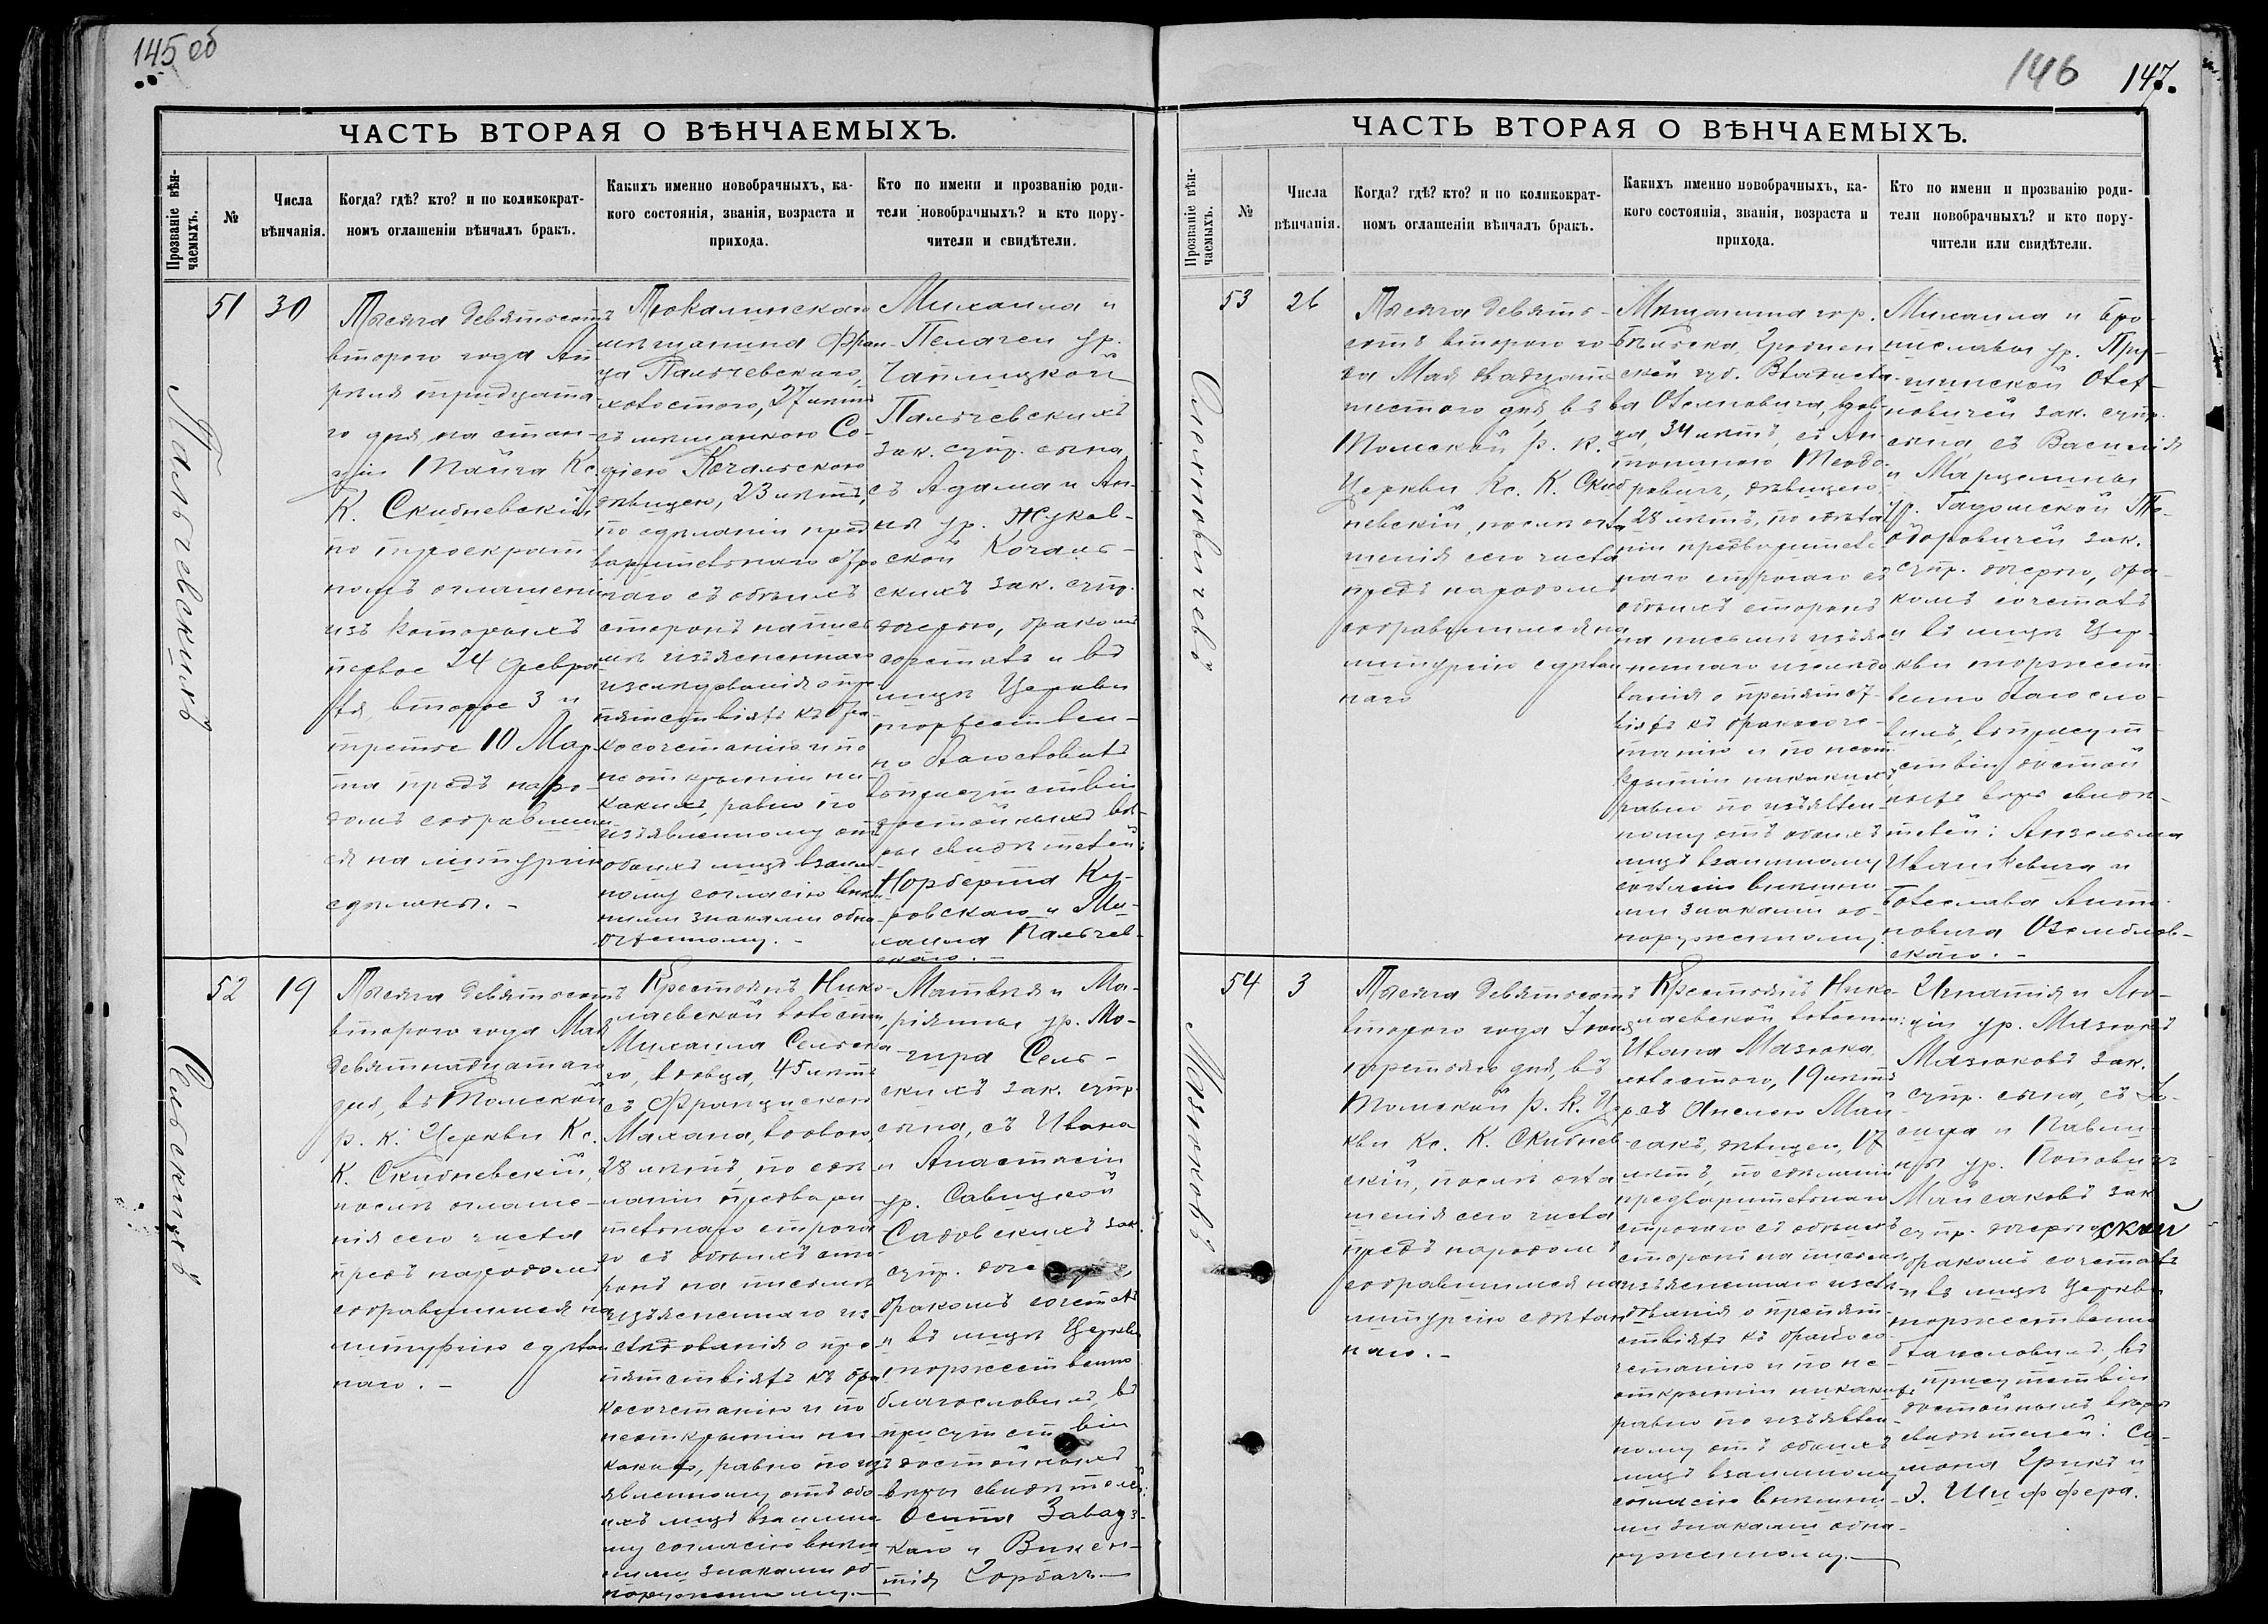 145 об
ЧАСТЬ ВТОРАЯ О ВѢНЧАЕМЫХЪ.
Прозваніе вѣн-
чаемыхъ.
№
Числа
вѣнчанія.
Когда? гдѣ? кто? и по коликократ-
номъ оглашеніи вѣнчалъ бракъ.
Какихъ именно новобрачныхъ, ка-
кого состоянія, званія, возраста и
прихода.
Кто по имени и прозванію роди-
тели новобрачныхъ? и кто пору-
чители и свидѣтели.
Пальчевскихъ
51
30
Тысяча девятьсотъ
второго года Ап-
рѣля тридцата-
го дня, на стан-
ціи Тайга Кс.
К. Скибневскій
по троекрат-
номъ оглашеніи
изъ которыхъ
первое 24 Февра-
ля, второе 3 и
третье 10 Мар-
та предъ наро-
домъ собравшим
ся на литургіи
сдѣланы. -
Тюкалинскаго
мѣщанина Фран-
ца Пальчевскаго,
холостого, 27 лѣтъ
съ мѣщанкою Со-
фіею Качальскою
дѣвицею, 23 лѣтъ,
по сдѣланіи пред
варительнаго стро
гаго съ обѣихъ
сторонъ на пись
мѣ изъясненнаго
изслѣдованія о пре
пятствіяхъ къ бра
косочетанію и по
неоткрытіи ни-
какихъ, равно по
изъявленному отъ
обоихъ лицъ взаим
ному согласію внѣш
ними знаками обна
руженному. -
Михаила и
Пелагеи ур.
Чаплицкой
Пальчевскихъ
зак. супр. сына,
съ Адама и Ан-
ны ур. Жуков-
ской Качаль-
скихъ зак. супр.
дочерью, бракомъ
сочеталъ и въ
лицѣ Церкви
торжествен-
но благословилъ
въ присутствіи
достойныхъ вѣ-
ры свидѣтелей:
Норберта Ку-
ровскаго и Ми-
хаила Пальчев-
скаго. -
Сельскихъ
52
19
Тысяча девятьсотъ
второго года Мая
девятнадцатаго
дня, въ Томской
р. к. Церкви Кс.
К. Скибневскій,
послѣ оглаше-
нія сего числа
предъ народомъ
собравшимся на
литургію сдѣлан
наго. -
Крестьянъ Нико-
лаевской волости,
Михаила Сельска-
го, вдовца, 45 лѣтъ
съ Францискою
Махана, вдовою,
28 лѣтъ, по сдѣ-
ланіи предвари
тельнаго строга
го съ обѣихъ сто-
ронъ на письмѣ
изъясненнаго из-
слѣдованія о пре
пятствіяхъ къ бра
косочетанію и по
неоткрытіи ни-
какихъ, равно по изъ
явленному отъ обо
ихъ лицъ взаимно
му согласію внѣш
ними знаками об-
наруженному. -
Матвѣя и Ма-
ріянны ур. Мо-
гира Сель-
скихъ зак. супр.
сына, съ Ивана
и Анастасіи
ур. Савицкой
Садовскихъ зак.
супр. дочерью,
бракомъ сочеталъ
и въ лицѣ Церкви
торжественно
благословилъ, въ
присутствіи
достойныхъ
вѣры свидѣтелей:
Осипа Завадз-
каго и Викен-
тія Горбачъ
146 147.
ЧАСТЬ ВТОРАЯ О ВѢНЧАЕМЫХЪ.
Прозваніе вѣн-
чаемыхъ.
№
Числа
вѣнчанія.
Когда? гдѣ? кто? и по коликократ-
номъ оглашеніи вѣнчалъ бракъ.
Какихъ именно новобрачныхъ, ка-
кого состоянія, званія, возраста и
прихода.
Кто по имени и прозванію роди-
тели новобрачныхъ? и кто пору-
чители или свидѣтели.
53
26
Тысяча девять-
сотъ второго го-
да Мая двадцать
шестого дня, въ
Томской р. к.
Церкви Кс. К. Скиб
невскій, послѣ огла
шенія сего числа
предъ народомъ
собравшимся на
литургію сдѣлан
наго
Мѣщанина гор.
Бѣльска, Гроднен
ской губ. Владисла
ва вдов-
ца, 34 лѣтъ, съ Ан-
тониною Теодо-
ровичъ, дѣвицею
28 лѣтъ, по сдѣла
ніи предваритель
наго строгаго съ
обѣихъ сторонъ
на письмѣ изъяс
неннаго изслѣдо
ванія о препятст
віяхъ къ бракосоче-
танію и по неот
крытіи никакихъ,
равно по изъявлен-
ному отъ обоихъ
лицъ взаимному
согласію внѣшни
ми знаками об-
наруженному.
Михаила и Бро-
ниславы ур. Пру-
шинской
зак. супр.
сына съ Василія
и Марцелины
ур. Гадомской Те-
одоровичей зак.
супр. дочерью, бра-
комъ сочеталъ
и въ лицѣ Цер-
кви торжест-
венно благосло-
вилъ, въ присут-
ствіи достой
ныхъ вѣры свидѣ-
телей: Анзельма
Ивашкевича и
Болеслава Анто-
новича
скаго. -
Мазюковъ
54
3
Тысяча девятьсотъ
второго года Іюня
третьяго дня, въ
Томской р. к. Цер
кви Кс. К. Скибнев-
скій, послѣ огла
шенія сего числа
предъ народомъ
собравшимся на
литургію сдѣлан
наго. -
Крестьянъ Нико-
лаевской волости:
Ивана Мазюка,
холостого, 19 лѣтъ
съ Анелею Май
сакъ, дѣвицею, 17
лѣтъ, по сдѣланіи
предварительнаго
строгаго съ обѣихъ
сторонъ на письмѣ
изъясненнаго изслѣ
дованія о препят-
ствіяхъ къ бракосо
четанію и по не-
открытіи никакихъ
равно по изъявлен-
ному отъ обоихъ
лицъ взаимному
согласію внѣшни-
ми знаками обна-
руженному. -
Игнатія и Лю-
ціи ур. Мазюкъ
Мазюковъ зак.
супр. сына, съ
и Павли-
ны ур. Поповичъ
Майсаковъ зак
супр. дочерью
бракомъ сочеталъ
и въ лицѣ Церкви
торжественно
благословилъ, въ
присутствіи
достойныхъ вѣры
свидѣтелей: Си-
мона Грикъ и
Э. Шифферa.